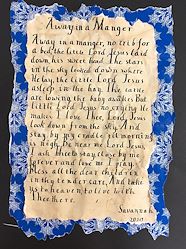 Away in a Manger
Away in a manger, no crib for
a bed, the little Lord Jesus laid
down his sweet head. The stars
in the sky looked down where
He lay, the little Lord Jesus
asleep in the hay. The cattle
are lowing the baby awakes But
little Lord Jesus no crying He
makes. I love Thee, Lord Jesus
look down from the sky And
stay by my cradle til morning
is nigh. Be near me Lord Jesus,
I ask Thee to stay Close by me
forever and love me I pray
Bless all the dear children
in thy tender care, And take
us to heaven to live with
Thee there.
Savannah
2020